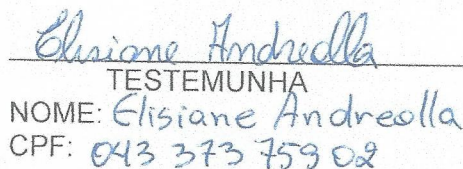 Elisiane Andreolla
TESTEMUNHA
NOME: Elisiane Andreolla
CPF: 043 373 759 02